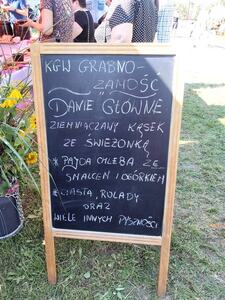 KGW GRABNO-
ZAMOŚĆ
DANIE GŁÓWNE
ZIEMNIACZANY KĄSEK
ZE ŚWIEŻONKĄ
* PAJDA CHLEBA ZE
SMALCEM I OGÓRKIEM
* CIASTA, ROLADY
ORAZ
WIELE INNYCH PYSZNOŚCI